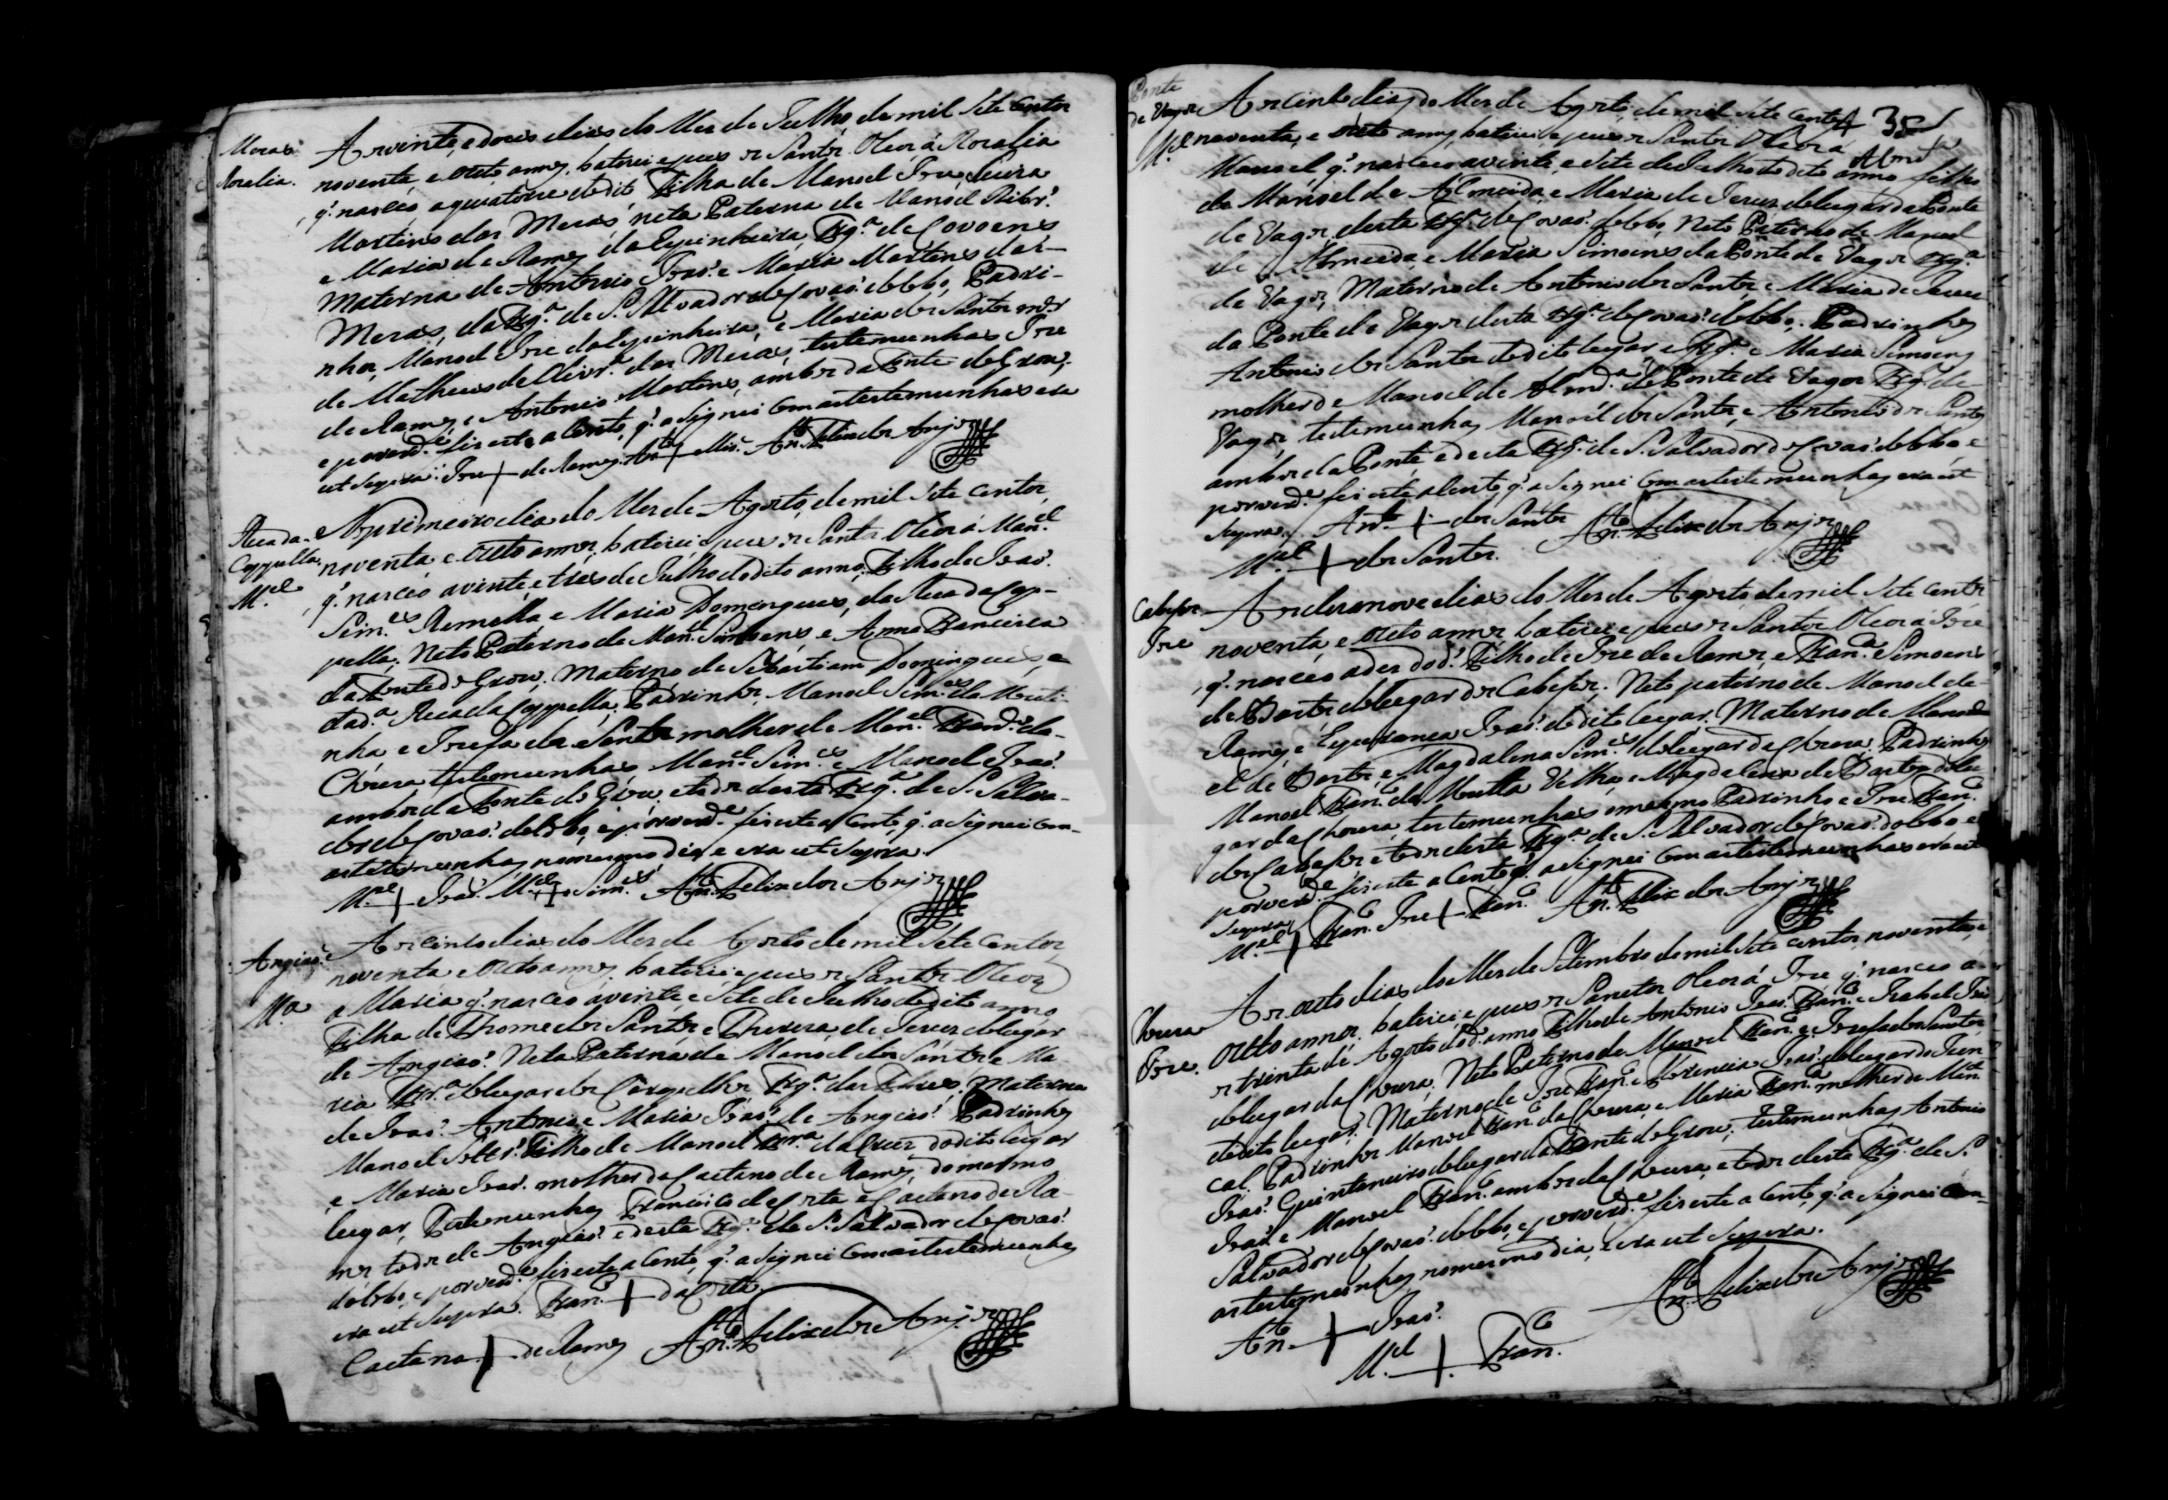 Mesas
Rosalia.
Aos vinte, e dous dias do Mes de Julho de mil Sete centos
noventa e outo annos, baticei e pus os Santos Oleos á Rosalia
q. nasceo a quatorze do dito Filha de Manoel Joze
Martins das Mesas neta Paterna de Manoel Ribr.º
e Maria de Ramos da Quinhera, Frg.ª de Covoens
Materna de Antonio Joaõ. e Maria Martins das
Mesas, da Frg.ª de S. Salvador de Covaõ. do Lobo, Padri-
nhos, Manoel Joze da, e Maria dos Santos m.er
de Matheus de Olivr.ª das Mesas, testemunhas Joze
de Ramos, e Antonio Martins, ambos da Fonte do Grou,
e por verd.e fis este acento, q. asignei com as testemunhas era
ut supra. Joze + de Ramos. An.to + Miz. An.to Felix dos Anjos
Rua da
Cappella
M.el
No primeiro dia do Mes de Agosto, de mil Sete centos,
noventa e outo annos, baticei e pus os Santos Oleos á Man.el
q. nasceo a vinte, e tres de Julho do dito anno, Filho de Joaõ.
Sim.es Ramalha e Maria Domingues, da Rua da Cap-
pella, Neto Paterno de Man.el Simoens e Anna Francisca
da Fonte do Grou, Materno de Sebastiam Domingues, e
da d.ª Rua da Cappella, Padrinhos, Manoel Sim.es da
nha, e Josefa dos Santos molher de Man.el Fran.co da
Choura testemunhas Man.el Sim.es e Manoel Joaõ.
ambos da Fonte do Grou, e todos desta Frg.ª de S. Salva-
dor de Covaõ. do Lobo, e por verd.e fis este acento, q. asignei com
as testemunhas no mesmo dia, e era ut supra.
M.el + Joaõ. M.el + Sim.es An.to Felix dos Anjos
Angiaõ.
M.ª
Aos cinco dias do Mes de Agosto de mil Sete centos,
noventa e outo annos, baticei, e pus os Santos Oleos
a Maria q. nasceo a vinte, e Sete de Julho do dito anno
Filha de Thome dos Santos, e Thereza de Jezus do lugar
de Angiaõ. Neta Paterna de Manoel dos Santos e Ma-
ria do lugar dos Carquilhos Frg.ª das Febres, Materna
de Joaõ. Antonio, e Maria Joaõ. de Angiaõ. Padrinhos
Manoel Filho de Manoel da Cruz do dito lugar
e Maria Joaõ. molher de Caetano de Ramos, do mesmo
lugar, Testemunhas Francisco da Costa e Caetano de Ra-
mos, todos de Angiaõ. e desta Frg.ª de S. Salvador de Covaõ.
do Lobo, e por verd.e fis este acento, q. asignei com as testemunhas
era ut supra. Fran.co + da Costa.
Caetano + de Ramos An.to Felix dos Anjos
35
Ponte
de Vagos
M.el
Aos cinco dias do Mes de Agosto, de mil Sete centos
noventa, e outo annos, baticei e pus os Santos Oleos á
Manoel q. nasceo a vinte, e Sete de Julho do dito anno filho
de Manoel de Almeida, e Maria de Jezus do lugar da Ponte
de Vagos, desta Frg.ª de Covaõ. do Lobo, Neto Paterno de Manoel
de Almeida, e Maria Simoens da Ponte de Vagos Frg.ª
de Vagos, Materno de Antonio dos Santos e Maria de Jezus
da Ponte de Vagos desta Frg.ª de Covaõ. do Lobo. Padrinhos
Antonio dos Santos do dito lugar e Frg.ª e Maria Simoens
molher de Manoel de Almd.ª da Ponte de Vagos Frg.ª de
Vagos, testemunhas Manoel dos Santos, e Antonio dos Santos
ambos da Ponte, e desta Frg.ª de S. Salvador de Covaõ. do Lobo e
por verd.e fis este acento q. asignei com as testemunhas era ut
supra. Ant.º + dos Santos An.to Felix dos Anjos
M.el + dos Santos.
Cabeços
Joze
Aos dezanove dias do Mes de Agosto de mil Sete centos
noventa, e outo annos, baticei e pus os Santos Oleos á Joze
q. nasceo a des do d.º Filho de Joze de Ramos, e Fran.ca Simoens
de Bastos do lugar dos Cabeços. Neto paterno de Manoel de
Ramos, e Esperança Joaõ. do dito lugar. Materno de Mano-
el de Bastos, e Magdalena Sim.es do lugar da Choura. Padrinhos
Manoel Fran.co da Velha, e Magdalena de Bastos do lu-
gar da Choura, testemunhas o mesmo Padrinho e Joze Fran.co
dos Cabeços e todos desta Frg.ª de S. Salvador de Covaõ. do Lobo e
por verd.e fis este acento q. asignei com as testemunhas era ut
supra. An.to Felix dos Anjos
M.el + Fran.co Joze + Fran.co
Choura
Joze.
Aos outo dias do Mes de Setembro de mil Sete centos noventa, e
outo annos. baticei e pus os Sanctos Oleos á Joze q. nasceo a-
os trinta de Agosto do d.º anno Filho de Antonio Joaõ. Fran.co e Izabel Joze
do lugar da Choura. Neto Paterno de Manoel Fran.co e Josefa dos Santos
do dito lugar. Materno de Joze Fran.co e Joaõ. do lugar do Jun-
cal Padrinhos Manoel Fran.co da Choura, e Maria Fran.ca molher de M.el
Joaõ. do lugar da Fonte do Grou, testemunhas Antonio
Joaõ. e Manoel Fran.co ambos da Choura, e todos desta Frg.ª de S.
Salvador de Covaõ. do Lobo, e por verd.e fis este acento q. asignei com
as testemunhas no mesmo dia, e era ut supra.
An.to + Joaõ. An.to Felix dos Anjos
M.el + Fran.co